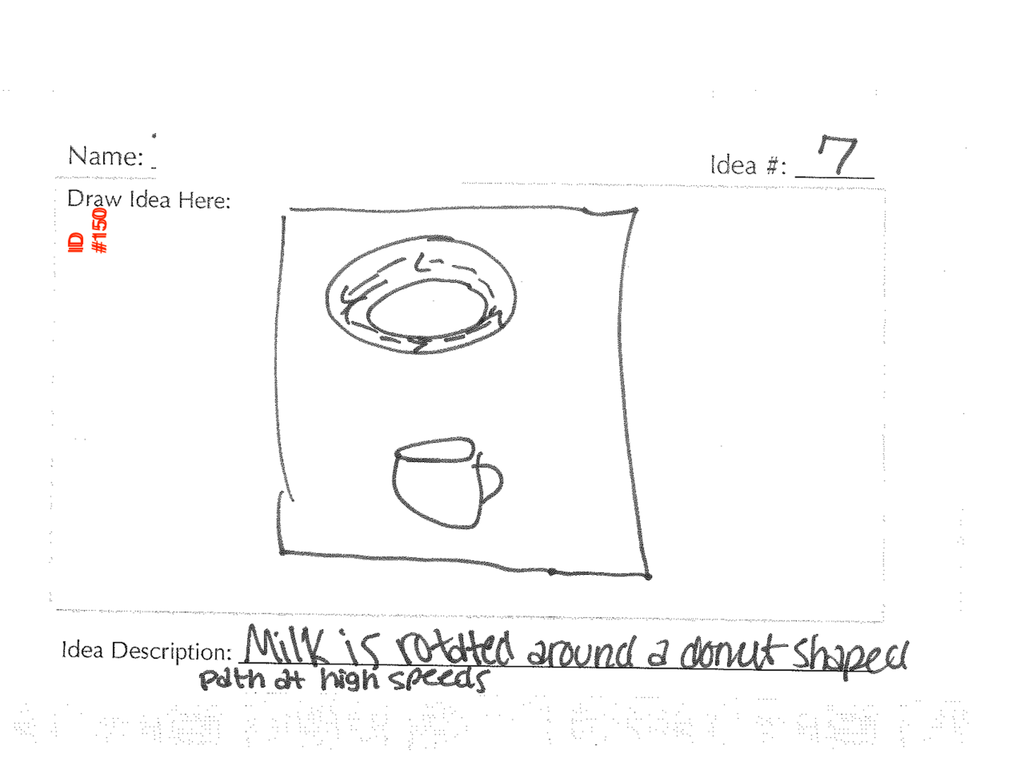 Name:
Idea #: 7
Draw Idea Here:
ID #150
Idea Description: Milk is rotated around a donut shaped
path at high speeds